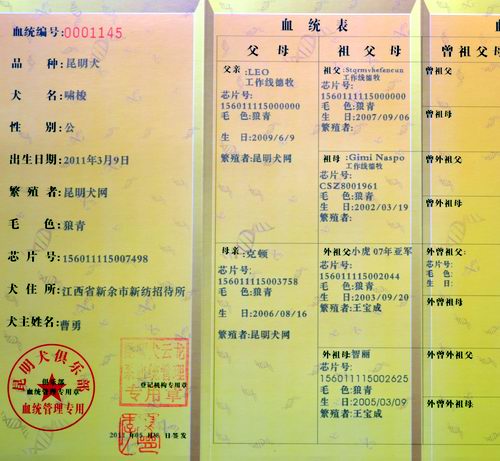 血统编号:0001145
品 种:昆明犬
犬 名:啸梭
性 别:公
出生日期:2011年3月9日
繁 殖 者:昆明犬网
毛 色:狼青
芯 片 号:156011115007498
犬 住 所:江西省新余市新纺招待所
犬主姓名:曹勇
昆明犬俱乐部
俱乐部
血统管理专用章
血统管理专用
登记机构专用章
专用章
签发
血统表
父母
父亲:LEO
工作线德牧
芯片号:
156011115000000
毛 色:狼青
生 日:2009/6/9
繁殖者:昆明犬网
母亲:克顿
芯片号:
156011115003758
毛 色:狼青
生 日:2006/08/16
繁殖者:昆明犬网
祖父母
祖父:
工作线德牧
芯片号:
156011115000000
毛 色:狼青
生 日:2007/09/06
繁殖者:
祖母:Gimi Naspo
工作线德牧
芯片号:
CSZ8001961
毛 色:狼青
生 日:2002/03/19
繁殖者:
外祖父小虎 07年亚军
芯片号:
156011115002044
毛 色:狼青
生 日:2003/09/20
繁殖者:王宝成
外祖母智丽
芯片号:
156011115002625
毛 色:狼青
生 日:2005/03/09
繁殖者:王宝成
曾祖父母
曾祖父:
曾祖母:
曾外祖父:
曾外祖母
外曾祖父:
芯片号:
毛 色:
生 日:
外曾祖母
外曾外祖父
外曾外祖母: